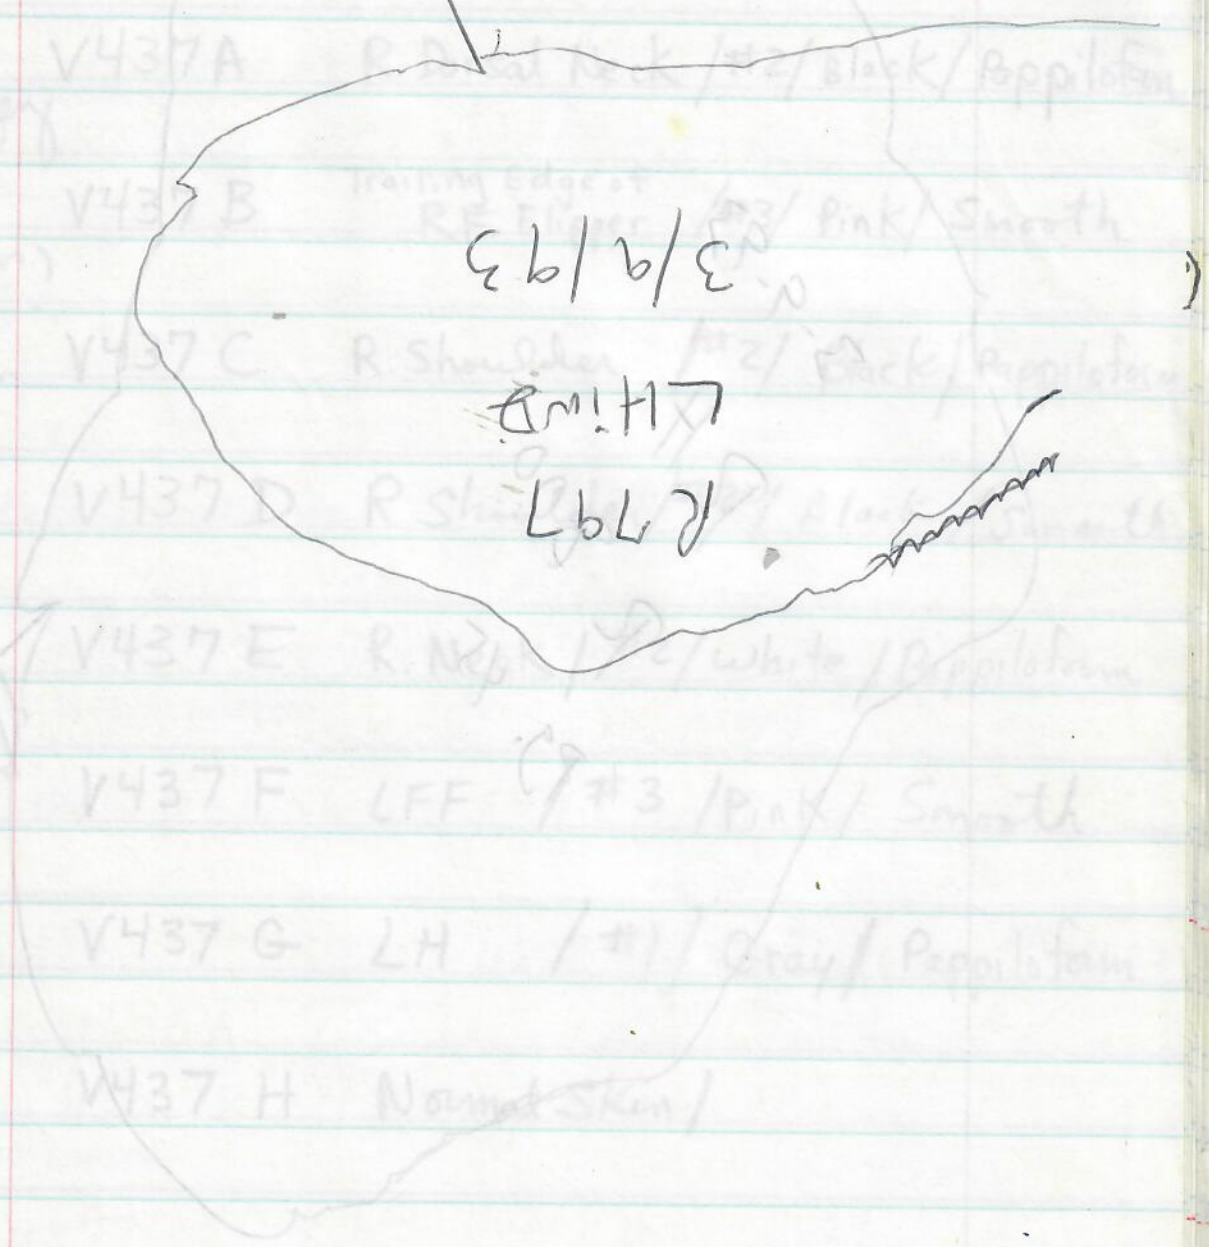 R797
LHind
3/9/93
V437 A R Dorsal Neck / #2 / Black / Pappilofom
V437 B Trailing Edge of
RF Flipper / #3 / Pink / Smooth
V437 C R Shoulder / #2 / Black / Pappilofom
V437 D R Smooth
V437 E R. Neck / #2 / White / Pappilofom
V437 F LFF / #3 / Pink / Smooth
V437 G LH / #1 / Gray / Pappilofom
V437 H Normal Skin /